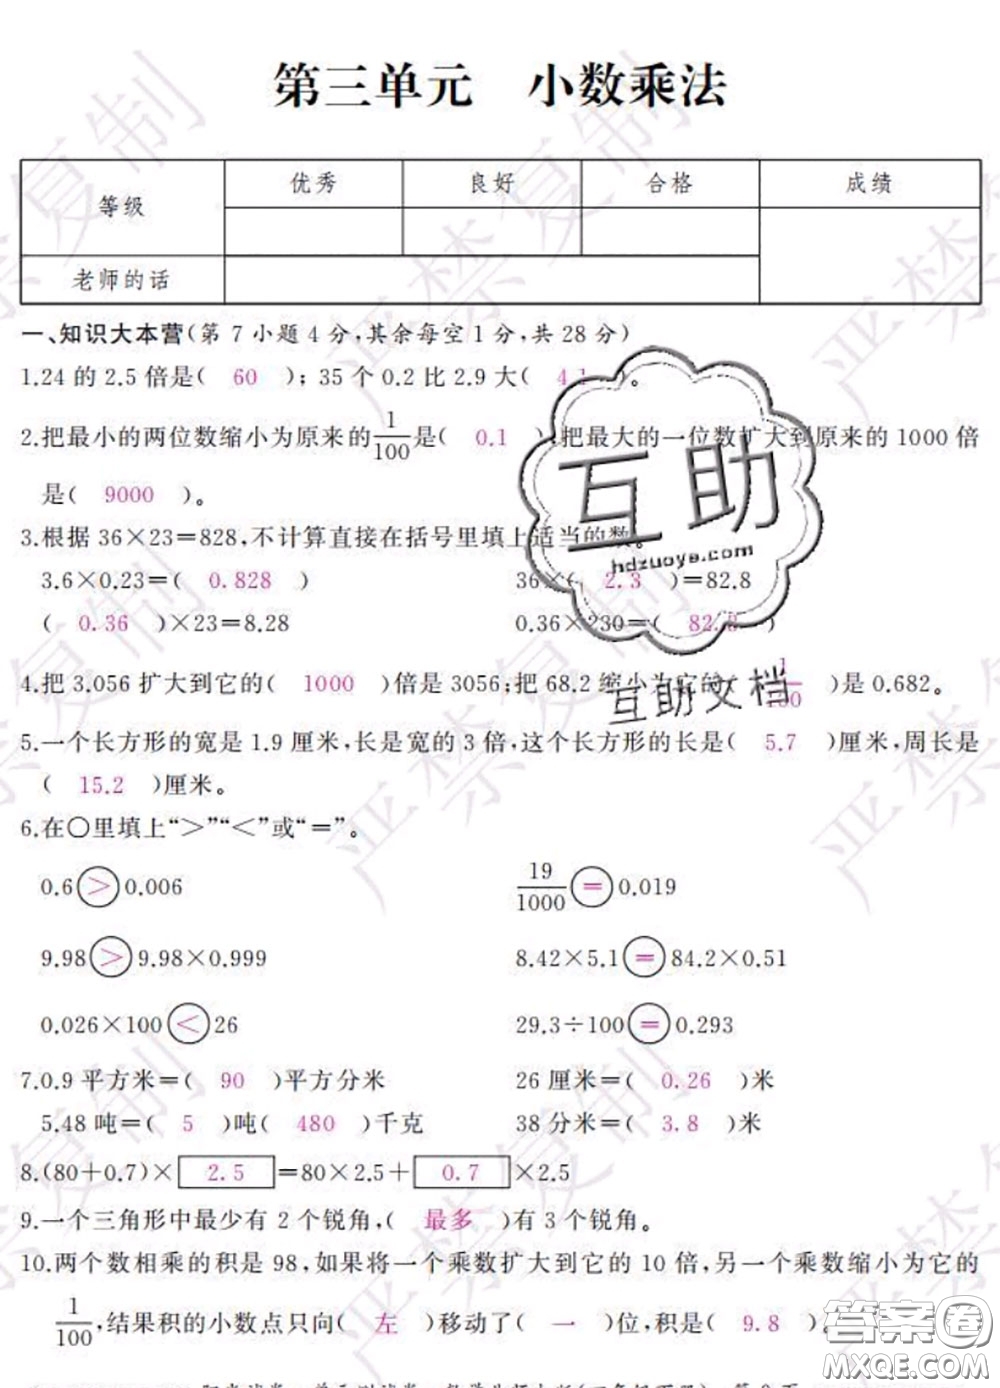 第三单元 小数乘法
等级 优秀 良好 合格 成绩
老师的话
一、知识大本营(第 7 小题 4 分,其余每空 1 分,共 28 分)
1.24 的 2.5 倍是( 60 ); 35 个 0.2 比 2.9 大( 4.1 )。
2.把最小的两位数缩小为原来的1/100是( 0.1 ),把最大的一位数扩大到原来的 1000 倍
是( 9000 )。
3.根据 36×23=828,不计算直接在括号里填上适当的数。
3.6×0.23=( 0.828 ) 36×( 2.3 )=82.8
( 0.36 )×23=8.28 0.36×230=( 82.8 )
4.把 3.056 扩大到它的( 1000 )倍是 3056;把 68.2 缩小为它的( 1/100 )是 0.682。
5.一个长方形的宽是 1.9 厘米,长是宽的 3 倍,这个长方形的长是( 5.7 )厘米,周长是
( 15.2 )厘米。
6.在○里填上“>”“<”或“=”。
0.6 > 0.006 19/1000 = 0.019
9.98 > 9.98×0.999 8.42×5.1 = 84.2×0.51
0.026×100 < 26 29.3÷100 = 0.293
7.0.9 平方米=( 90 )平方分米 26 厘米=( 0.26 )米
5.48 吨=( 5 )吨( 480 )千克 38 分米=( 3.8 )米
8.(80+0.7)× 2.5 =80×2.5+ 0.7 ×2.5
9.一个三角形中最少有 2 个锐角,( 最多 )有 3 个锐角。
10.两个数相乘的积是 98,如果将一个乘数扩大到它的 10 倍,另一个乘数缩小为它的
1/100,结果积的小数点只向( 左 )移动了( 一 )位,积是( 9.8 )。
严禁复制
互助
hdzuoye.com
互助文档
答案圈
MXQE.COM